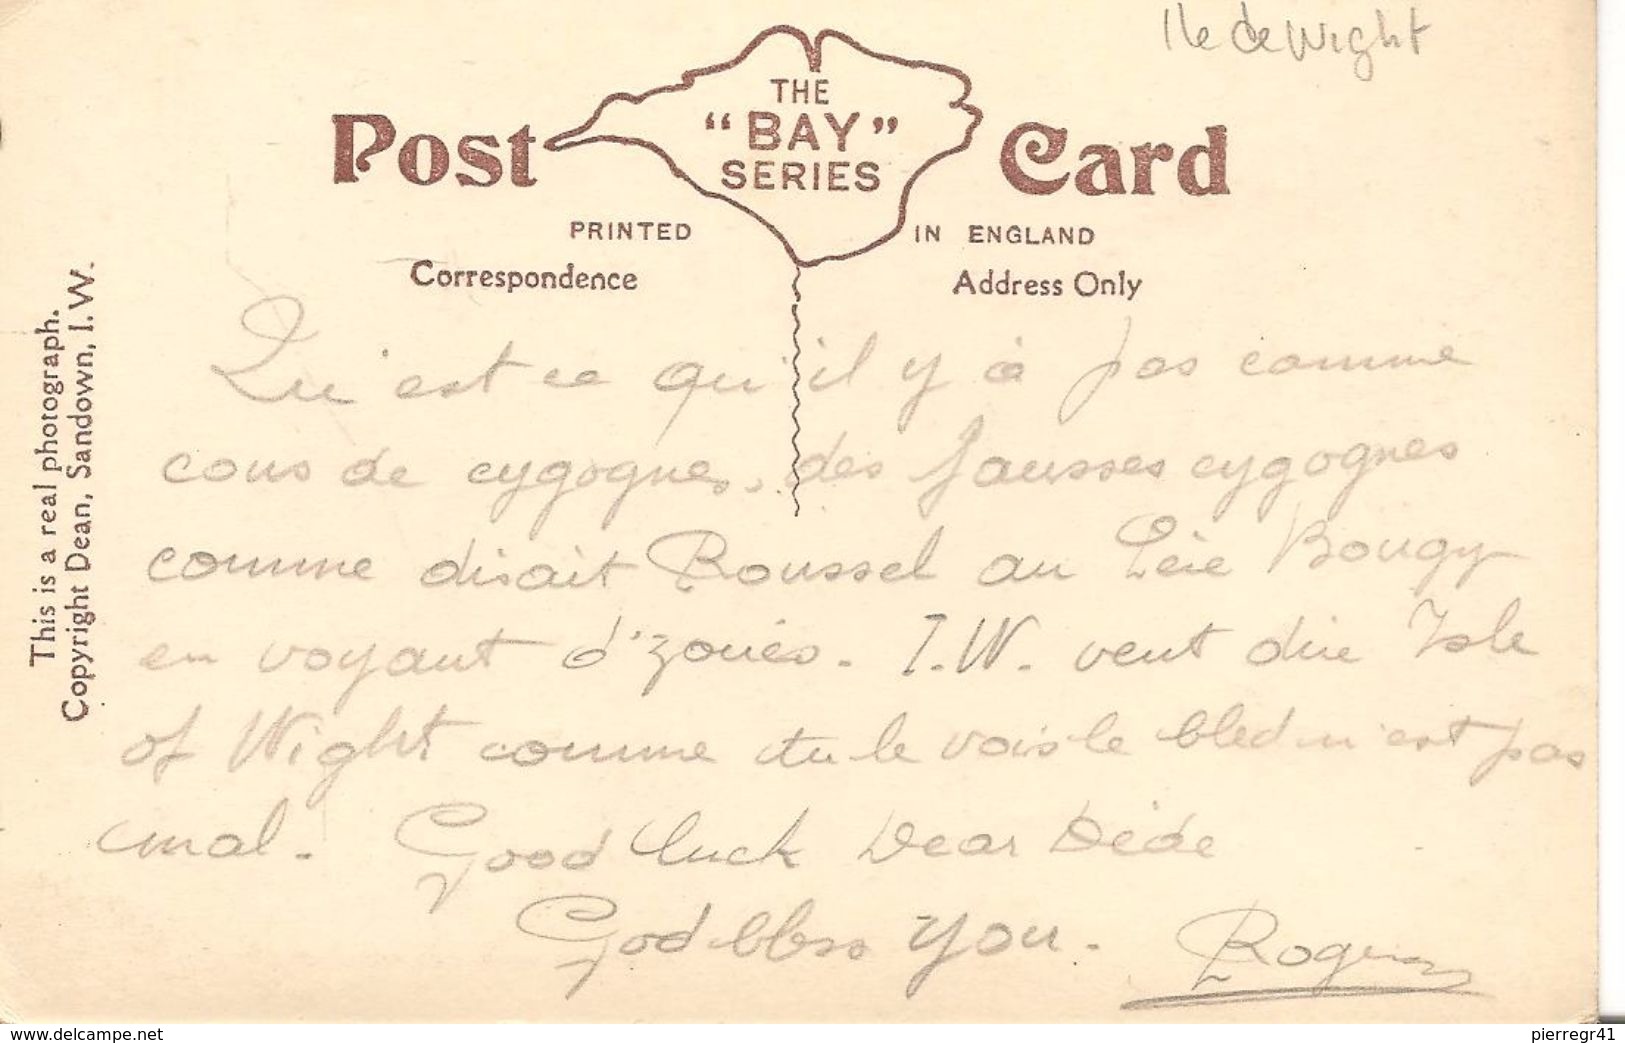 Ile de Wight
THE
Post "BAY" Card
SERIES
PRINTED IN ENGLAND
Correspondence Address Only
This is a real photograph.
Copyright Dean, Sandown, I.W.
Qu'est ce qu'il y à pas comme
cous de cygognes, des fausses cygognes
comme disait Roussel au Père Bougy
en voyant d'zoués. I.W. veut dire Isle
of Wight comme tu le vois le bled n'est pas
mal. Good luck Dear Dédé
God bless You. Roger
www.delcampe.net
pierregr41